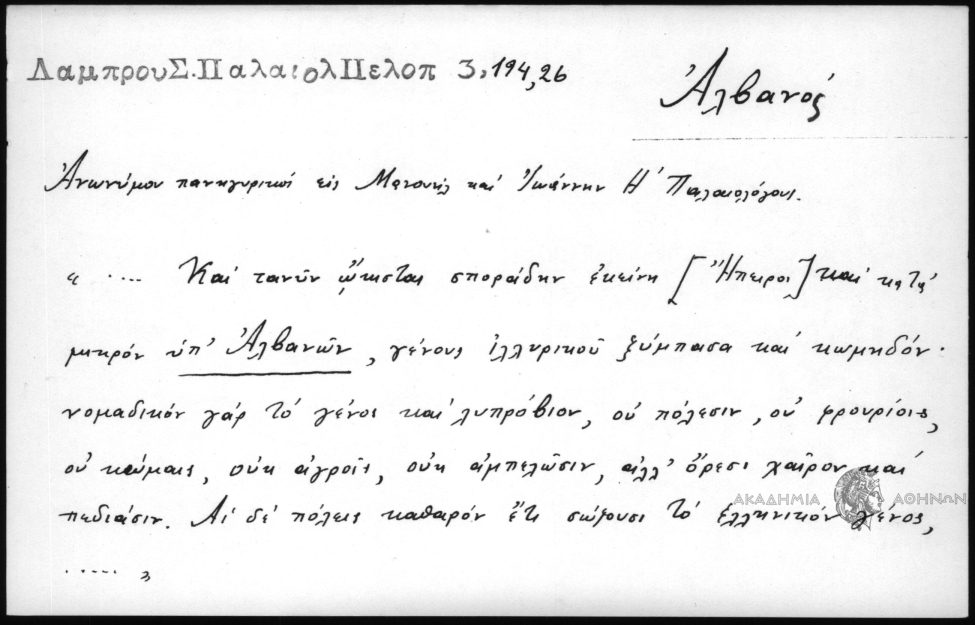 ΛαμπρουΣ.ΠαλαιολΠελοπ 3,194,26
Ἀλβανός
Ἀνωνύμου πανηγυρικοί εἰς Μανουήλ καί Ἰωάννην Η΄ Παλαιολόγους.
« .... Καί τανῦν ᾤκισται σποράδην ἐκείνη [Ἤπειρος] καί κατά
μικρόν ὑπ' Ἀλβανῶν, γένους ἰλλυρικοῦ ξύμπασα καί κωμηδόν·
νομαδικόν γάρ τό γένος καί λυπρόβιον, οὐ πόλεσιν, οὐ φρουρίοις,
οὐ κώμαις, οὐκ ἀγροῖς, οὐκ ἀμπελῶσιν, ἀλλ' ὄρεσι χαῖρον καί
ΑΚΑΔΗΜΙΑ ΑΘΗΝΩΝ
πεδιάσιν. Αἱ δέ πόλεις καθαρόν ἔτι σώζουσι τό ἑλληνικόν γένος,
...... »